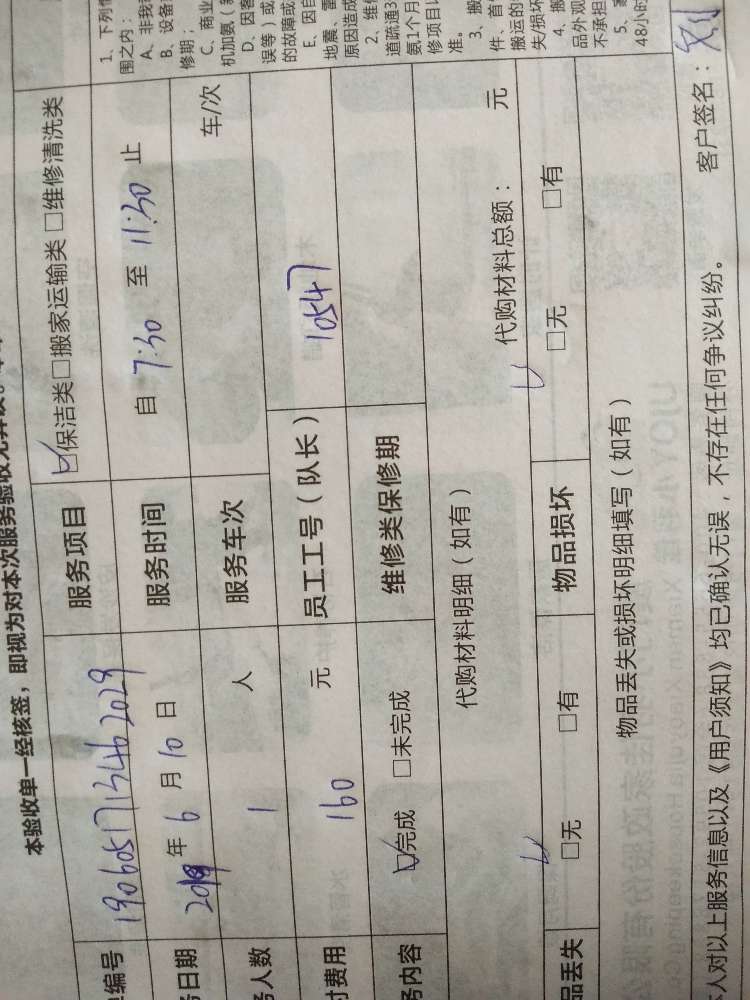 本验收单一经核签，即视为对本次服务验收无异议。
编号 1906051713462029 服务项目 ☑保洁类 □搬家运输类 □维修清洗类
务日期 2019年6月10日 服务时间 自 7:30 至 11:30 止
务人数 1 人 服务车次 车/次
付费用 160 元 员工工号（队长） 10547
务内容 ☑完成 □未完成 维修类保修期
代购材料明细（如有） 代购材料总额： 元
品丢失 ☑无 □有 物品损坏 ☑无 □有
物品丢失或损坏明细填写（如有）
本人对以上服务信息以及《用户须知》均已确认无误，不存在任何争议纠纷。 客户签名：刘
1、下列
围之内：
A、非我
B、设备
修期；
C、商业
机加氨（
D、因客
误等）或
的故障或
E、因自
地震、雷
原因造成
2、维修
道疏通3
氨1个月
修项目以
准。
3、搬
件、首
搬运的
失/损坏
4、搬
品外观
不承担
5、
48小时